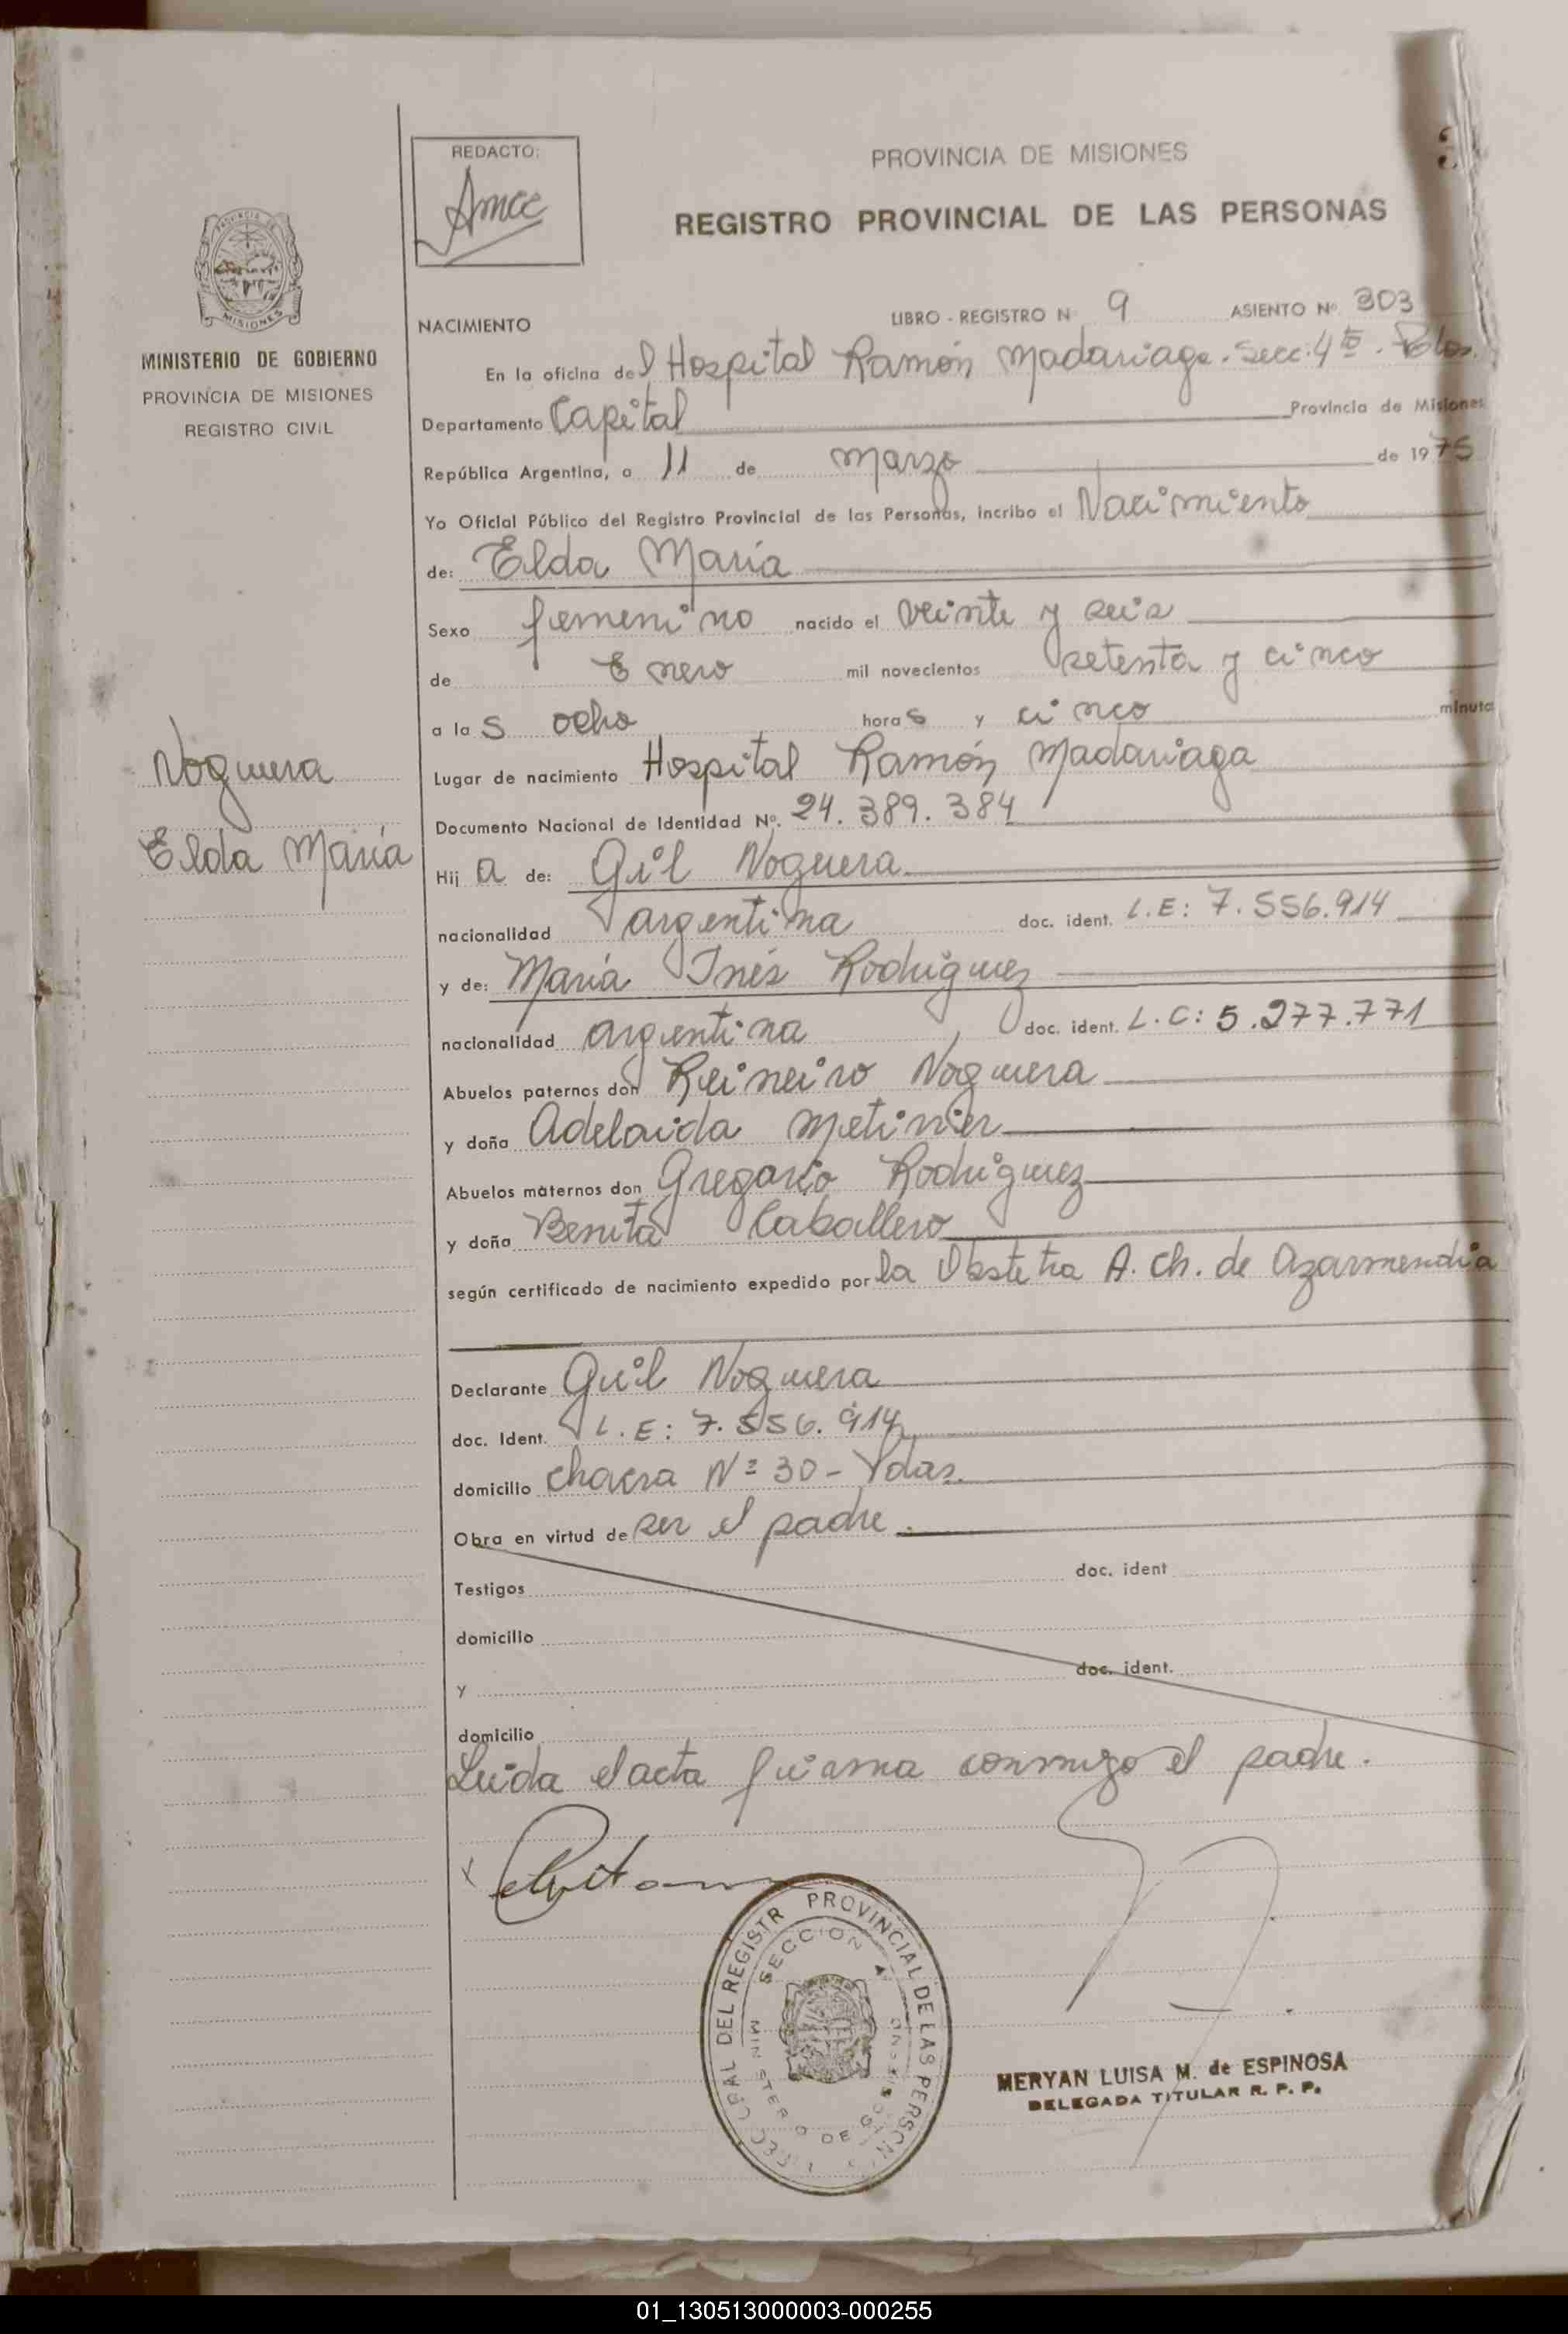 REDACTO:
Amce
PROVINCIA DE MISIONES
REGISTRO PROVINCIAL DE LAS PERSONAS
MISIONES
MINISTERIO DE GOBIERNO
PROVINCIA DE MISIONES
REGISTRO CIVIL
NACIMIENTO
LIBRO - REGISTRO N 9 ASIENTO Nº 303
En la oficina del Hospital Ramón Madariaga. Secc. 4ta. Pdas.
Departamento Capital Provincia de Misiones
República Argentina, a 11 de marzo de 1975
Yo Oficial Público del Registro Provincial de las Personas, incribo el Nacimiento
de: Elda María
Sexo femenino nacido el veinte y seis
de Enero mil novecientos setenta y cinco
a las ocho horas y cinco minuto
Noguera
Lugar de nacimiento Hospital Ramón Madariaga
Documento Nacional de Identidad Nº. 24.389.384
Elda María
Hija de: Gil Noguera
nacionalidad argentina doc. ident. L.E: 7.556.914
y de: María Inés Rodriguez
nacionalidad argentina doc. ident. L.C: 5.277.771
Abuelos paternos don Reineiro Noguera
y doña Adelaida Metinier
Abuelos maternos don Gregorio Rodriguez
y doña Benita Caballero
según certificado de nacimiento expedido por la Obstetra A. Ch. de Azarmendia
Declarante Gil Noguera
doc. Ident. L.E: 7.556.914
domicilio chacra Nº 30 - Pdas.
Obra en virtud de ser el padre.
Testigos doc. ident
domicilio
y doc. ident.
domicilio
Leida el acta firma conmigo el padre.
PROVINCIAL DE LAS PERSON
DEL REGISTR
SECCION 4
MINISTERIO DE GOBIERNO
MERYAN LUISA M. de ESPINOSA
DELEGADA TITULAR R. P. P.
01_130513000003-000255